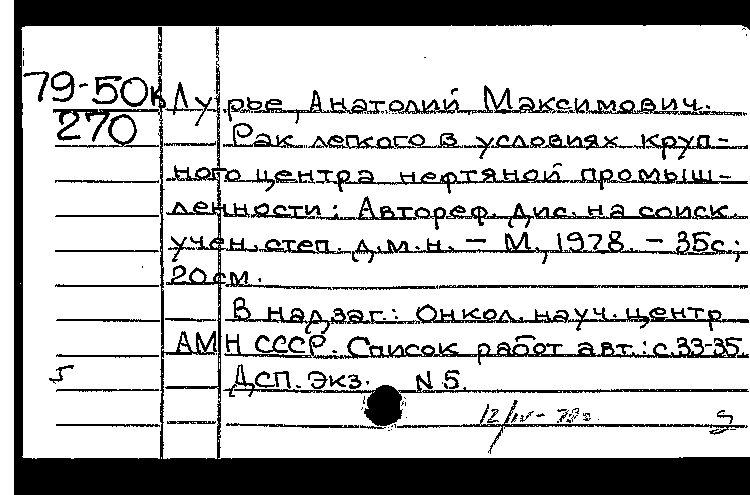 79-50к
270
Лурье, Анатолий Максимович.
Рак легкого в условиях круп-
ного центра нефтяной промыш-
ленности: Автореф. дис. на соиск.
учен. степ. д.м.н. – М., 1978. – 35с.;
20 см.
В надзаг.: Онкол. науч. центр
АМН СССР. Список работ авт.: с.33-35.
Дсп. Экз. N 5.
12/IV-79г.